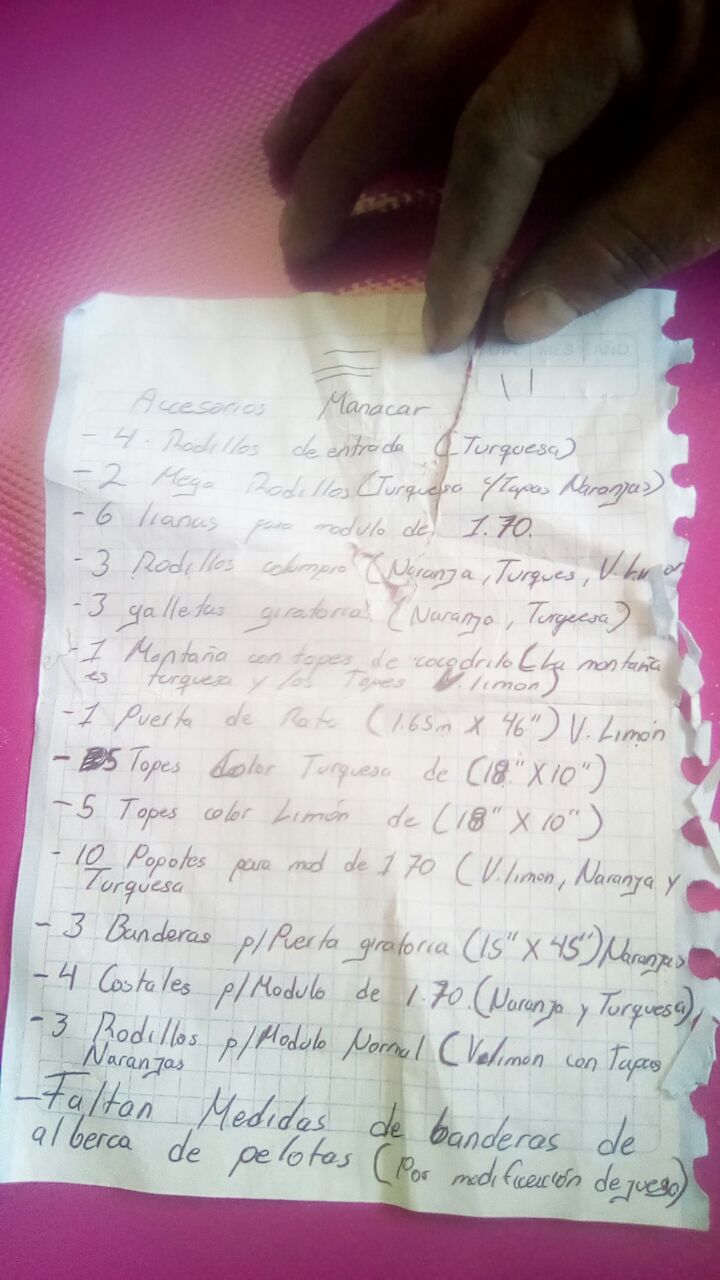 DIA MES AÑO
Accesorios Manacar
- 4 - Rodillos de entrada (Turquesa)
- 2 Mega Rodillos (Turquesa y Tapas Naranjas)
- 6 lianas para modulo de 1.70.
- 3 Rodillos columpio (Naranja, Turques, V. Limon
- 3 galletas giratorias (Naranja, Turquesa)
- 1 Montaña con topes de cocodrilo (La montaña
es turquesa y los Topes V. limon)
- 1 Puerta de Rato (1.65m X 46") V. Limón
- 5 Topes Color Turquesa de (18" X 10")
- 5 Topes color Limón de (18" X 10")
- 10 Popotes para mod de 1.70 (V. limon, Naranja y
Turquesa
- 3 Banderas p/Puerta giratoria (15" X 45") Naranjas
- 4 Costales p/Modulo de 1.70. (Naranja y Turquesa)
- 3 Rodillos p/Modulo Normal (V. limon con Tapas
Naranjas
- Faltan Medidas de banderas de
alberca de pelotas (Por modificación de juego)